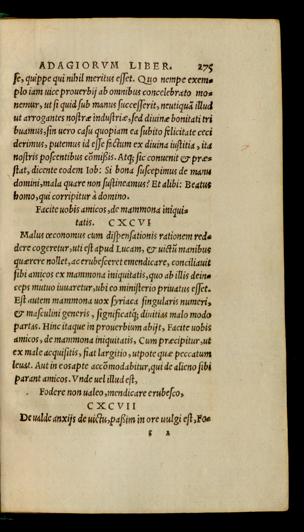 ADAGIORVM LIBER. 275
se, quippe qui nihil meritus esset. Quo nempe exem-
plo iam uice prouerbij ab omnibus concelebrato mo-
nemur, ut si quid sub manus successerit, neutiquã illud
ut arrogantes nostræ industriæ, sed diuinæ bonitati tri
buamus, sin uero casu quopiam ea subito felicitate ceci
derimus, putemus id esse fictum ex diuina iustitia, ita
nostris poscentibus cõmißis. Atq; sic conuenit & præ-
stat, dicente eodem Iob: Si bona suscepimus de manu
domini, mala quare non sustineamus? Et alibi: Beatus
homo, qui corripitur à domino.
Facite uobis amicos, de mammona iniqui-
tatis. CXCVI
Malus œconomus cum dispensationis rationem red-
dere cogeretur, uti est apud Lucam, & uictũ manibus
quærere nollet, ac erubesceret emendicare, conciliauit
sibi amicos ex mammona iniquitatis, quo ab illis dein-
ceps mutuo iuuaretur, ubi eo ministerio priuatus esset.
Est autem mammona uox syriaca singularis numeri,
& masculini generis, significatq; diuitias malo modo
partas. Hinc itaque in prouerbium abijt, Facite uobis
amicos, de mammona iniquitatis, Cum præcipitur, ut
ex male acquisitis, fiat largitio, utpote quæ peccatum
leuat. Aut in eos apte accõmodabitur, qui de alieno sibi
parant amicos. Vnde uel illud est,
Fodere non ualeo, mendicare erubesco,
CXCVII
De ualde anxijs de uictu, paßim in ore uulgi est, Fo-
s 2